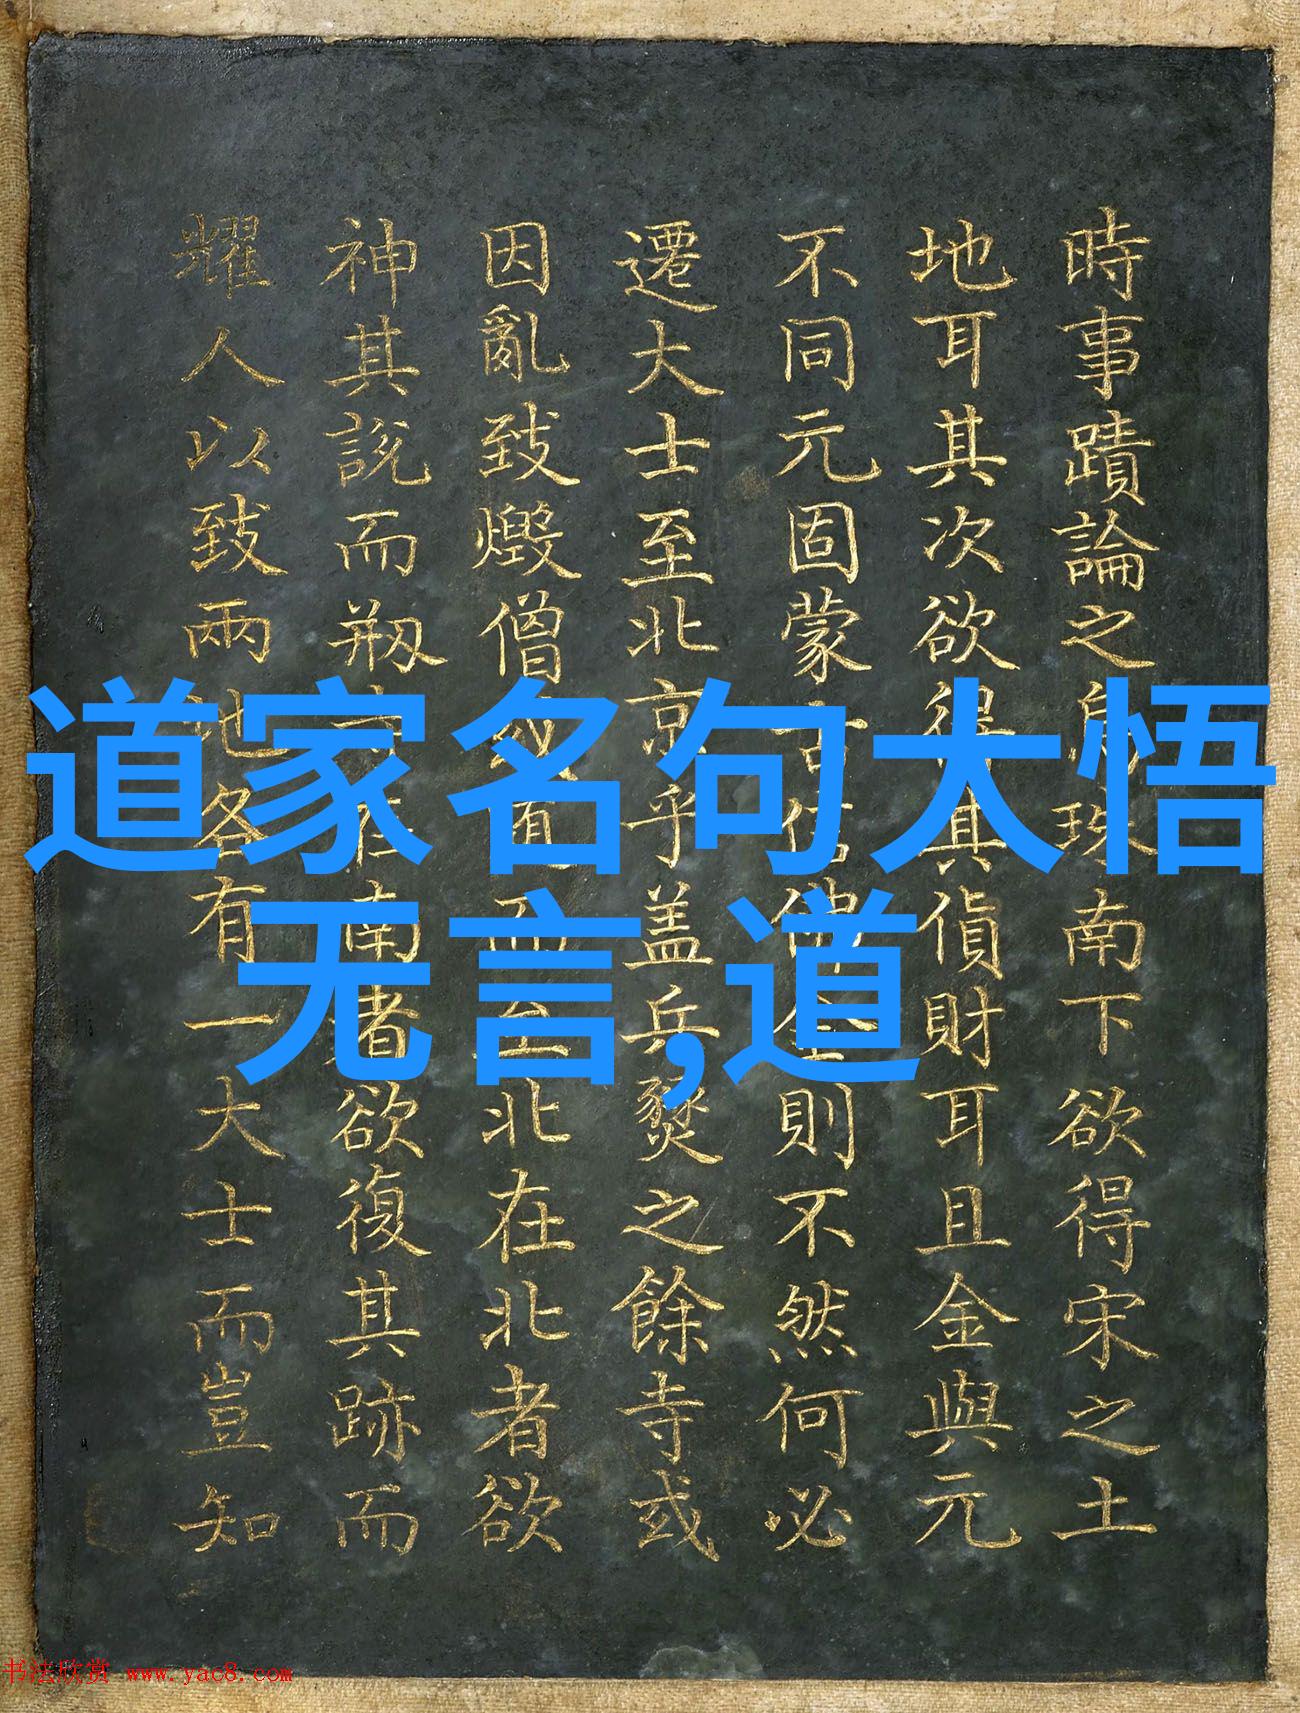 時事蹟論之良珠南下欲得宋之土
地耳其次欲得其貨財耳且金與元
不同元固蒙古信佛金則不然何必
遷大士至北京乎盖兵燹之餘寺或
因亂致燬僧或而至北在北者欲
神其說而剏在南者欲復其跡而
耀人以致兩地各有一大士而豈知
道家名句大悟
无言,道
书法欣赏 www.yac8.com